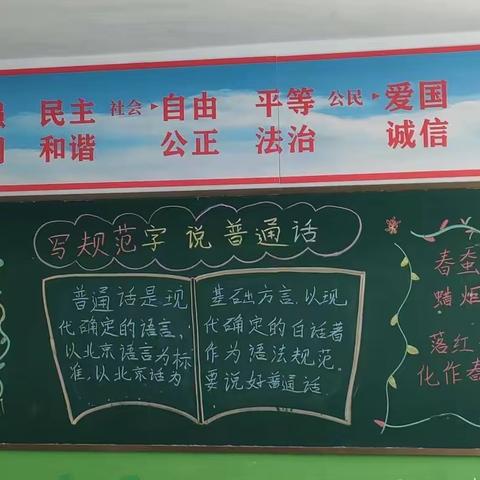 民主 社会 自由 平等 公民 爱国
和谐 公正 法治 诚信
写规范字 说普通话
普通话是现
代确定的语言,
以北京语言为标
准,以北京话为
基础出方言,以现
代确定的白话著
作为语法规范。
要说好普通话
春蚕
蜡炬
落红
化作春